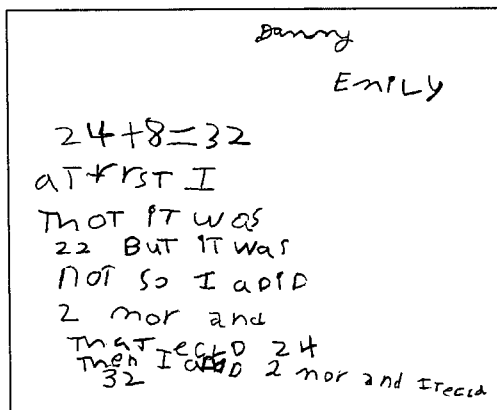 Danny
EmiLy
24+8=32
aT frrst I
ThoT iT was
22 BuT iT was
noT so I adid
2 mor and
ThaT ecld 24
Then I add 2 mor and ITecld
32